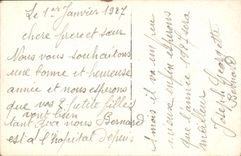 Le 1er Janvier 1927
chere frere et sœur
Nous vous souhaitons
une bonne et heureuse
année et nous espérons
que vos 2 petite filles
vont bien
tant qu'a nous Bernard
est a l'hopital depuis
1 mois il va un peu
mieux nous esperons
que l'année sera
meilleur
Joseph Georgette
Bernard